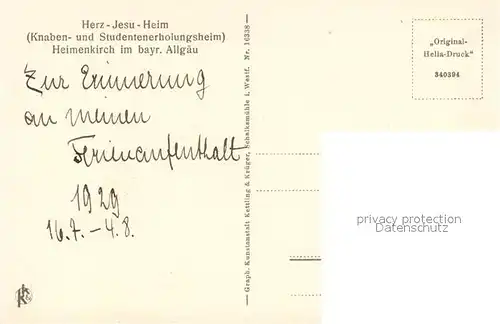 Herz-Jesu-Heim
(Knaben- und Studentenerholungsheim)
Heimenkirch im bayr. Allgäu
Zur Erinnerung
an meinen
Ferienaufenthalt
1929
16.7. – 4.8.
— Graph. Kunstanstalt Kettling & Krüger, Schalksmühle i. Westf. Nr. 16338 —
„Original-
Helia-Druck"
340394
privacy protection
Datenschutz